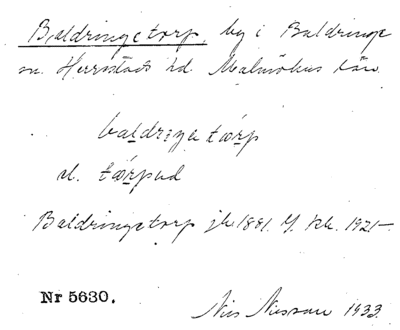 Baldringetorp, by i Baldringe
sn. Herrestads hd. Malmöhus län.
baldriŋa tɷrp
el. tɷrpəd
Baldringetorp jb 1881. G. kk. 1921–
Nr 5630.
Nils Nilsson 1933.